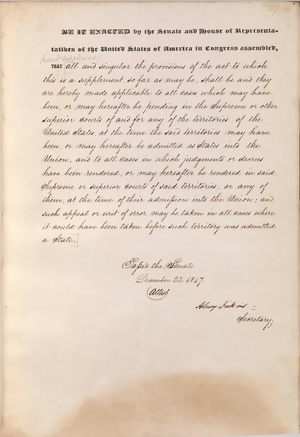 BE IT ENACTED by the Senate and House of Representa-
tatives of the United States of America in Congress assembled,
THAT all and singular the provisions of the act to which
this is a supplement, so far as may be, shall be and they
are hereby made applicable to all cases which may have
been, or may hereafter be pending in the Supreme or other
superior Courts of and for any of the territories of the
United States, at the time the said territories may have
been or may hereafter be admitted as States into the
Union, and to all cases in which judgments or decrees
have been rendered, or may hereafter be rendered in said
Supreme or superior courts of said territories, or any of
them, at the time of their admission into the Union; and
such appeal or writ of error may be taken in all cases where
it could have been taken before such territory was admitted
a State.
Passed the Senate
December 22. 1847.
Attest
Secretary